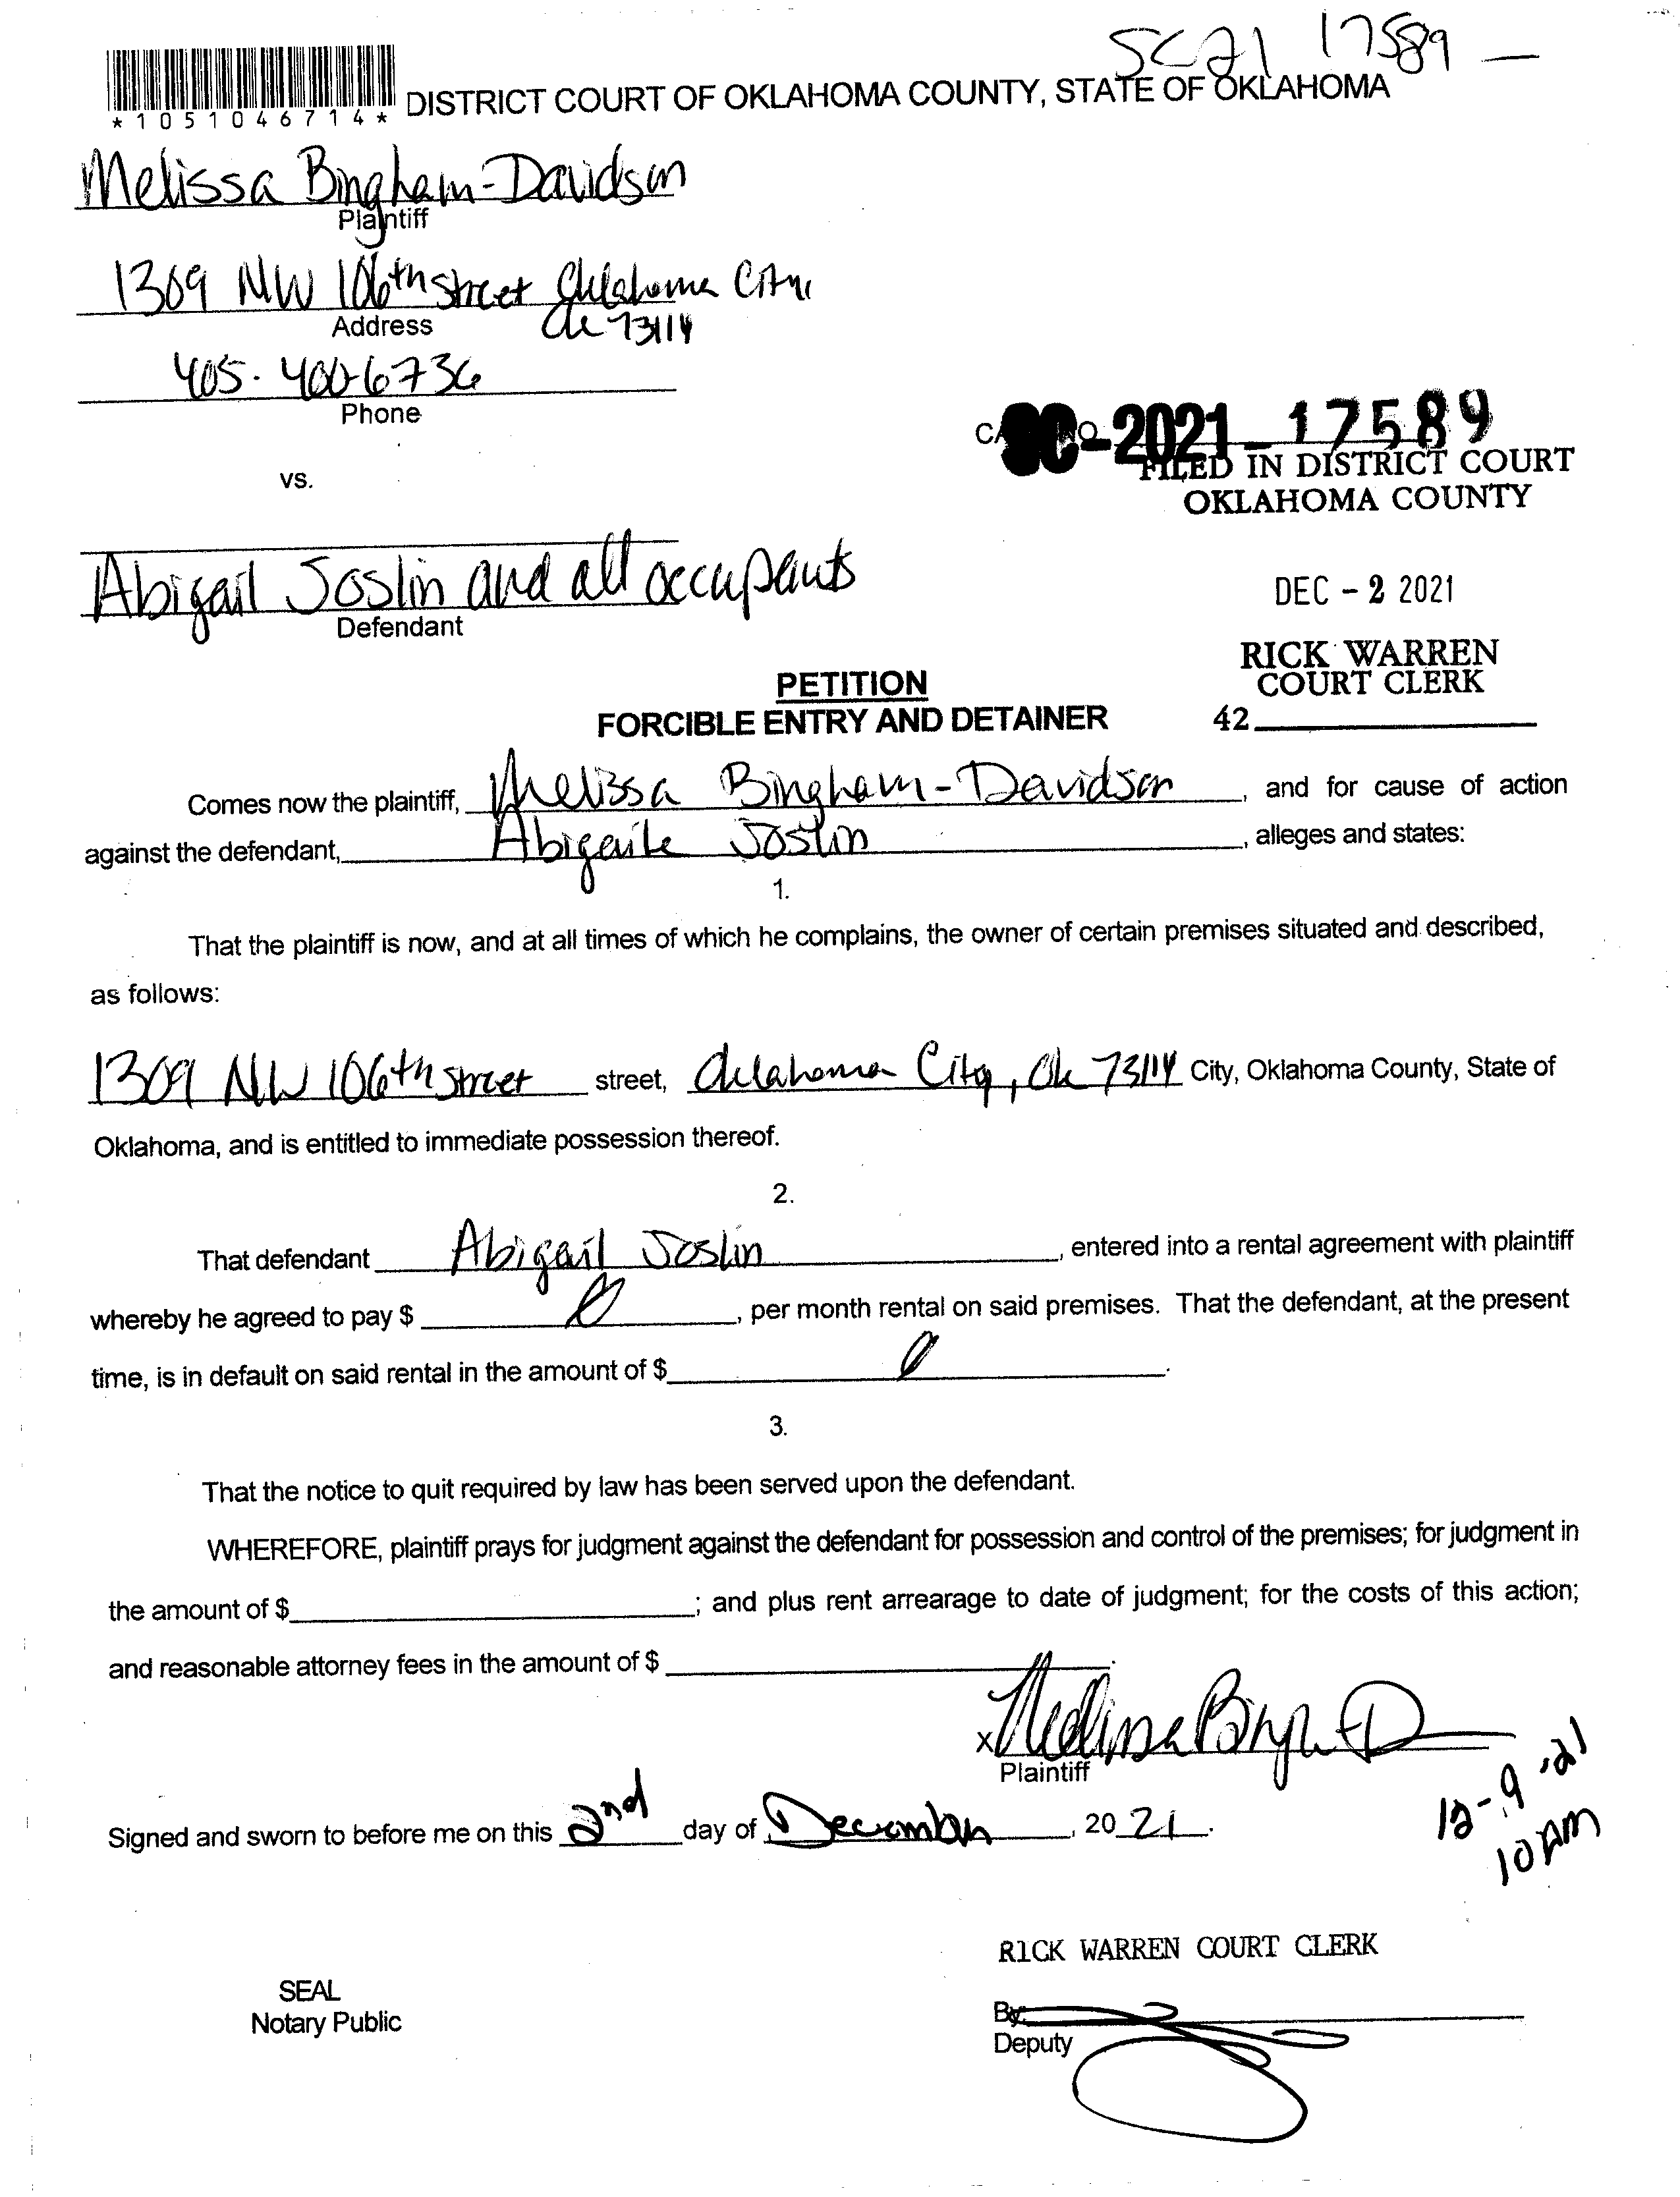 SC21 17589 —
*1051046714*
DISTRICT COURT OF OKLAHOMA COUNTY, STATE OF OKLAHOMA
Melissa Bingham-Davidson
Plaintiff
1309 NW 106th street Oklahoma City,
Address
Ok 73114
405-400-6736
Phone
SC-2021-17589
vs.
FILED IN DISTRICT COURT
OKLAHOMA COUNTY
Abigail Joslin and all occupants
Defendant
DEC - 2 2021
RICK WARREN
COURT CLERK
42
PETITION
FORCIBLE ENTRY AND DETAINER
Comes now the plaintiff, Melissa Bingham-Davidson, and for cause of action
against the defendant, Abigaile Joslin, alleges and states:
1.
That the plaintiff is now, and at all times of which he complains, the owner of certain premises situated and described,
as follows:
1309 NW 106th street street, Oklahoma City, Ok 73114 City, Oklahoma County, State of
Oklahoma, and is entitled to immediate possession thereof.
2.
That defendant Abigail Joslin, entered into a rental agreement with plaintiff
whereby he agreed to pay $ 0, per month rental on said premises. That the defendant, at the present
time, is in default on said rental in the amount of $ 0.
3.
That the notice to quit required by law has been served upon the defendant.
WHEREFORE, plaintiff prays for judgment against the defendant for possession and control of the premises; for judgment in
the amount of $; and plus rent arrearage to date of judgment; for the costs of this action;
and reasonable attorney fees in the amount of $.
x
Plaintiff
Signed and sworn to before me on this 2nd day of December, 2021.
12-9-21
10 AM
RICK WARREN COURT CLERK
SEAL
Notary Public
By:
Deputy